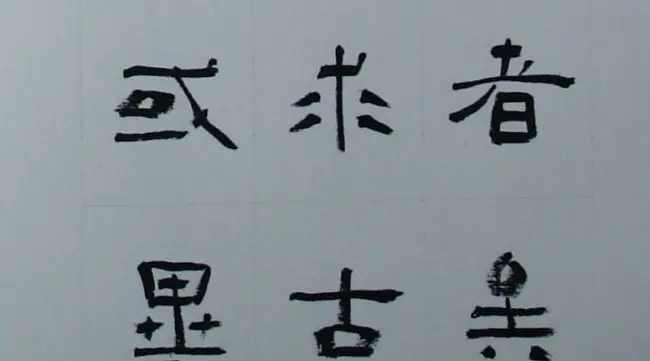 者矣
求古
或異